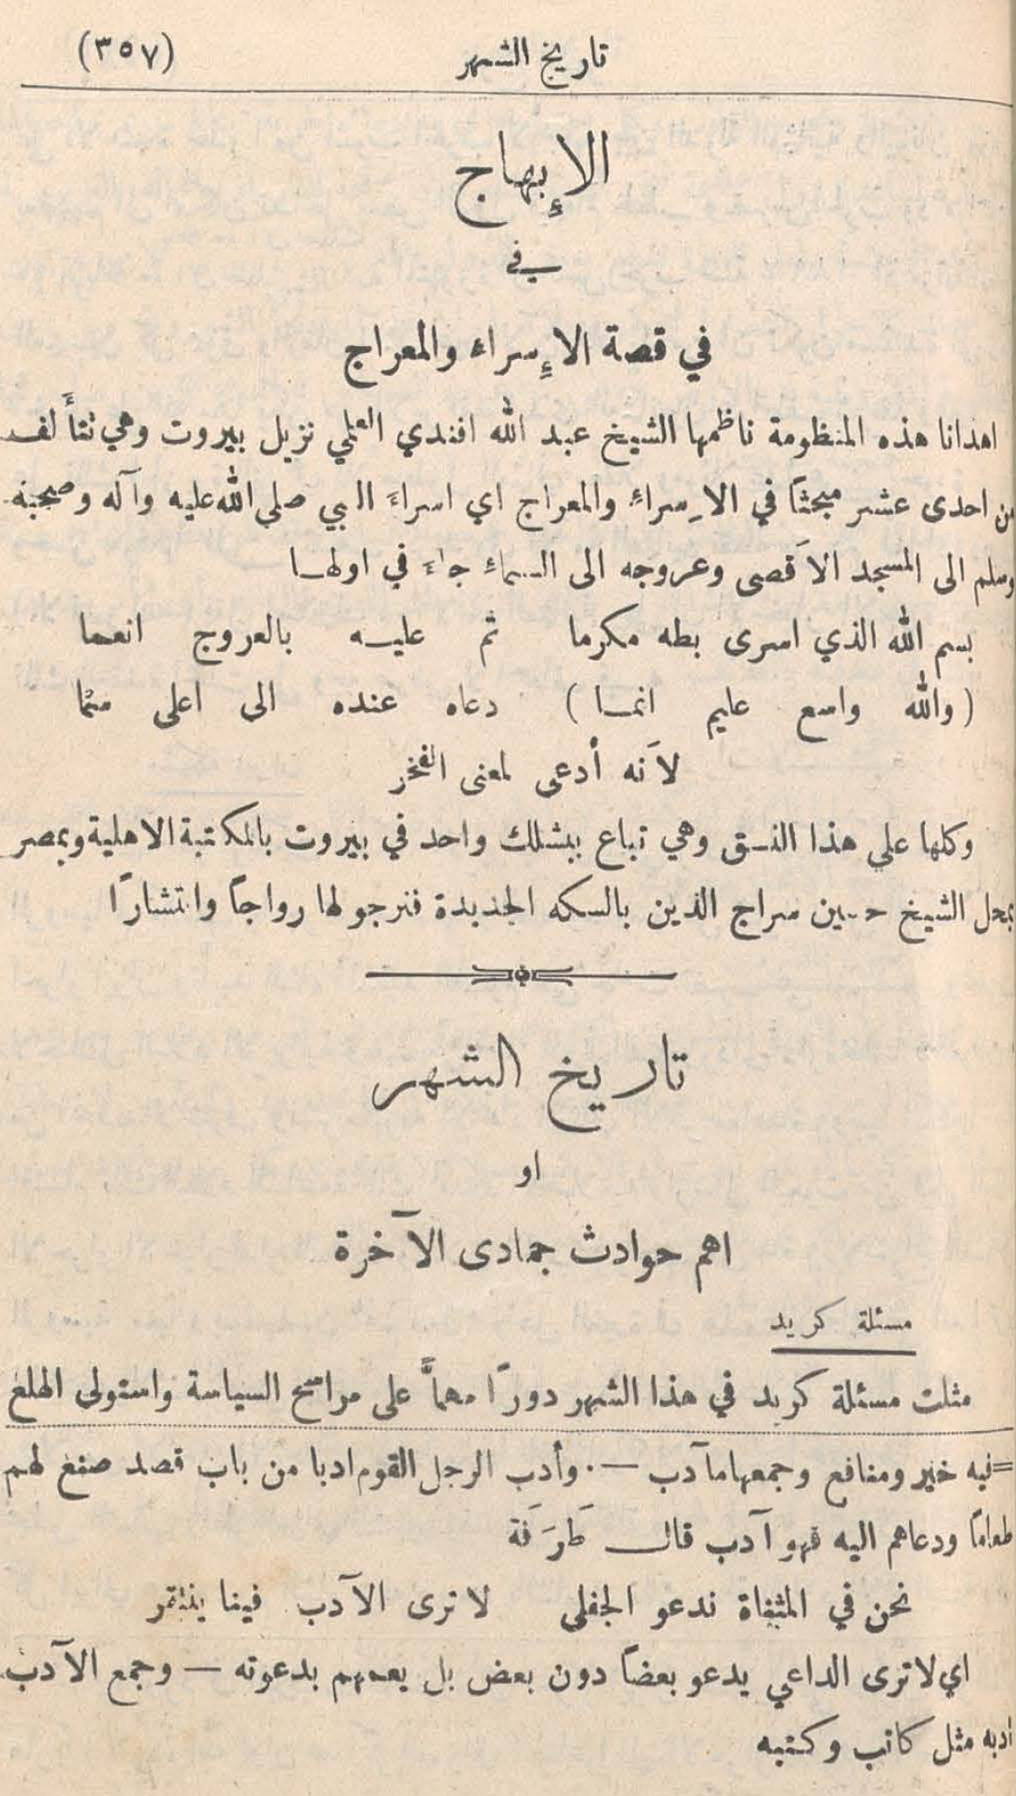 تاريخ الشهر (٣٥٧)
الإبهاج
في
في قصة الإسراء والمعراج
اهدانا هذه المنظومة ناظمها الشيخ عبد الله افندي العلمي نزيل بيروت وهي نتأَلف
من احدى عشر مبحثًا في الاِسراءِ والمعراج اي اسراءَ البي صلى الله عليه وآله وصحبه
وسلم الى المسجد الاَقصى وعروجه الى السماءِ جاءَ في اولها
بسم الله الذي اسرى بطه مكرما ثم عليه بالعروج انعما
(والله واسع عليم انما) دعاه عنده الى اعلى سما
لاَنه أدعى لمعنى الفخر
وكلها على هذا النسق وهي تباع ببشلك واحد في بيروت بالمكتبة الاهلية وبمصر
بمحل الشيخ حسين سراج الدين بالسكه الجديدة فنرجو لها رواجاً وانتشارًا
تاريخ الشهر
او
اهم حوادث جمادى الآخرة
مسئلة كريد
مثلت مسئلة كريد في هذا الشهر دورًا مهماًّ على مراسح السياسة واستولى الهلع
=فيه خير ومنافع وجمعها مآدب —. وأدب الرجل القوم ادبا من باب قصد صنع لهم
طعامًا ودعاهم اليه فهو آدب قال طَرَفَة
نحن في المشتاة ندعو الجفلى لا ترى الآدب فينا ينتقر
اي لا ترى الداعي يدعو بعضاً دون بعض بل يعمهم بدعوته — وجمع الآدب
ادبه مثل كاتب وكتبه